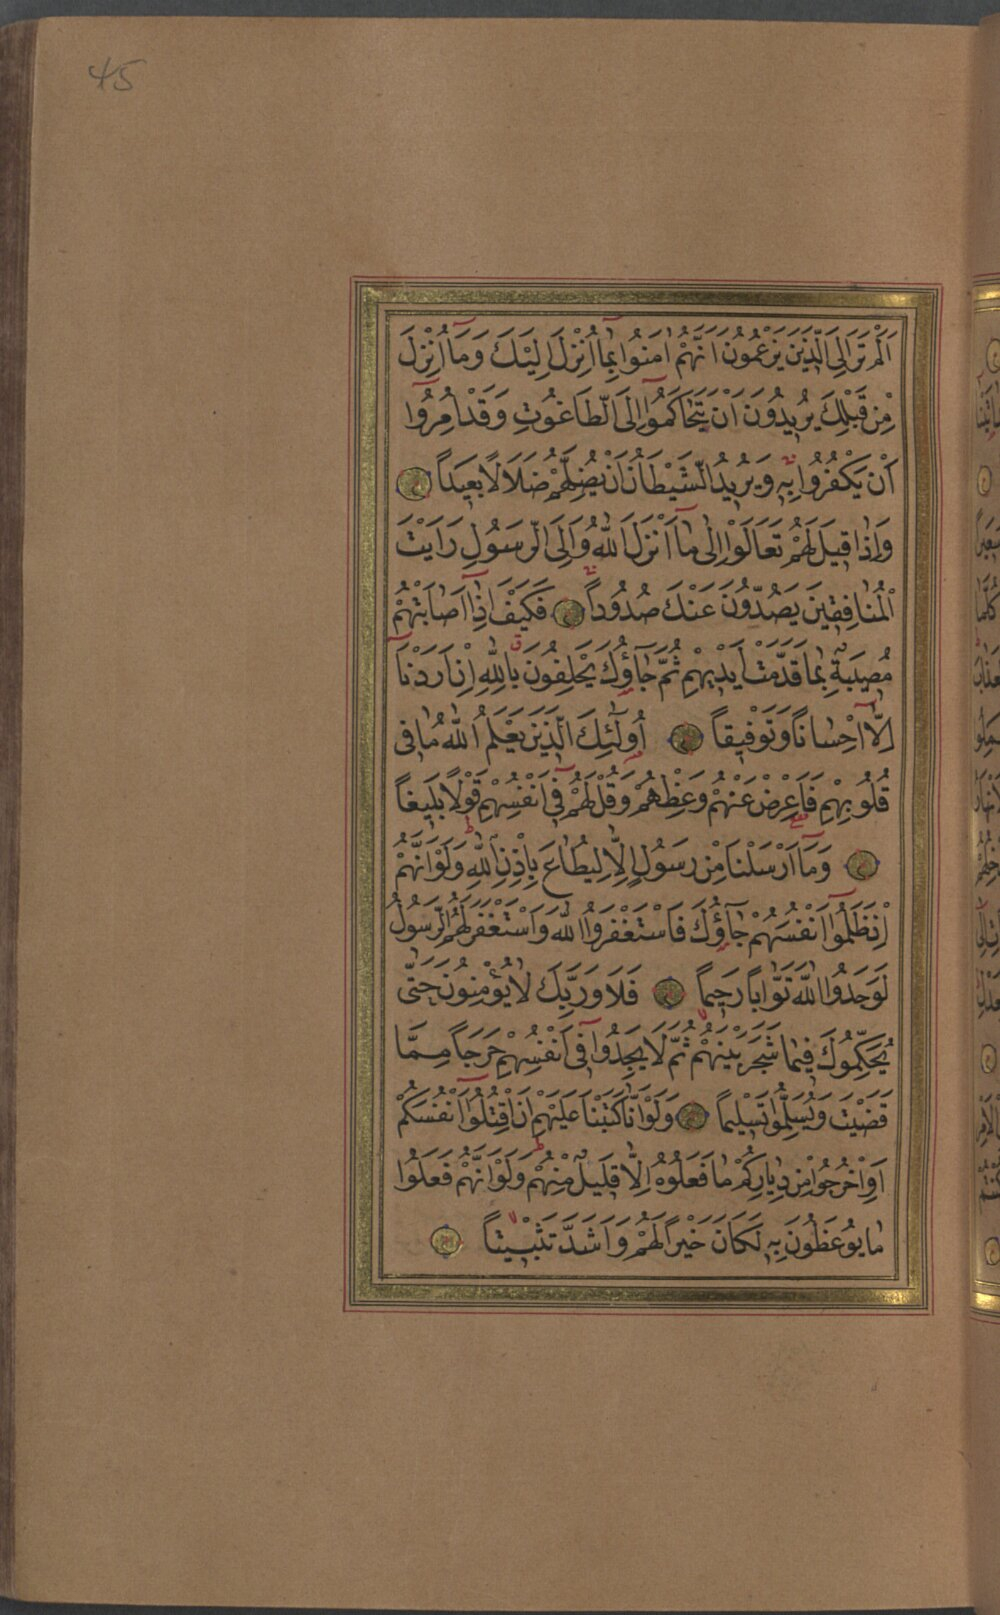 45
اَلَمْ تَرَ اِلَى الَّذٖينَ يَزْعُمُونَ اَنَّهُمْ اٰمَنُوا بِمَٓا اُنْزِلَ اِلَيْكَ وَمَٓا اُنْزِلَ
مِنْ قَبْلِكَ يُرٖيدُونَ اَنْ يَتَحَاكَمُٓوا اِلَى الطَّاغُوتِ وَقَدْ اُمِرُٓوا
اَنْ يَكْفُرُوا بِهٖ وَيُرٖيدُ الشَّيْطَانُ اَنْ يُضِلَّهُمْ ضَلَالًا بَعٖيدًا
وَاِذَا قٖيلَ لَهُمْ تَعَالَوْا اِلٰى مَٓا اَنْزَلَ اللّٰهُ وَاِلَى الرَّسُولِ رَاَيْتَ
الْمُنَافِقٖينَ يَصُدُّونَ عَنْكَ صُدُودًا فَكَيْفَ اِذَٓا اَصَابَتْهُمْ
مُصٖيبَةٌ بِمَا قَدَّمَتْ اَيْدٖيهِمْ ثُمَّ جَٓاؤُكَ يَحْلِفُونَ بِاللّٰهِ اِنْ اَرَدْنَٓا
اِلَّٓا اِحْسَانًا وَتَوْفٖيقًا اُو۬لٰٓئِكَ الَّذٖينَ يَعْلَمُ اللّٰهُ مَا فٖى
قُلُوبِهِمْ فَاَعْرِضْ عَنْهُمْ وَعِظْهُمْ وَقُلْ لَهُمْ فٖٓى اَنْفُسِهِمْ قَوْلًا بَلٖيغًا
وَمَٓا اَرْسَلْنَا مِنْ رَسُولٍ اِلَّا لِيُطَاعَ بِاِذْنِ اللّٰهِ وَلَوْ اَنَّهُمْ
اِذْ ظَلَمُٓوا اَنْفُسَهُمْ جَٓاؤُكَ فَاسْتَغْفَرُوا اللّٰهَ وَاسْتَغْفَرَ لَهُمُ الرَّسُولُ
لَوَجَدُوا اللّٰهَ تَوَّابًا رَحٖيمًا فَلَا وَرَبِّكَ لَا يُؤْمِنُونَ حَتّٰى
يُحَكِّمُوكَ فٖيمَا شَجَرَ بَيْنَهُمْ ثُمَّ لَا يَجِدُوا فٖٓى اَنْفُسِهِمْ حَرَجًا مِمَّا
قَضَيْتَ وَيُسَلِّمُوا تَسْلٖيمًا وَلَوْ اَنَّا كَتَبْنَا عَلَيْهِمْ اَنِ اقْتُلُٓوا اَنْفُسَكُمْ
اَوِ اخْرُجُوا مِنْ دِيَارِكُمْ مَا فَعَلُوهُ اِلَّا قَلٖيلٌ مِنْهُمْ وَلَوْ اَنَّهُمْ فَعَلُوا
مَا يُوعَظُونَ بِهٖ لَكَانَ خَيْرًا لَهُمْ وَاَشَدَّ تَثْبٖيتًا